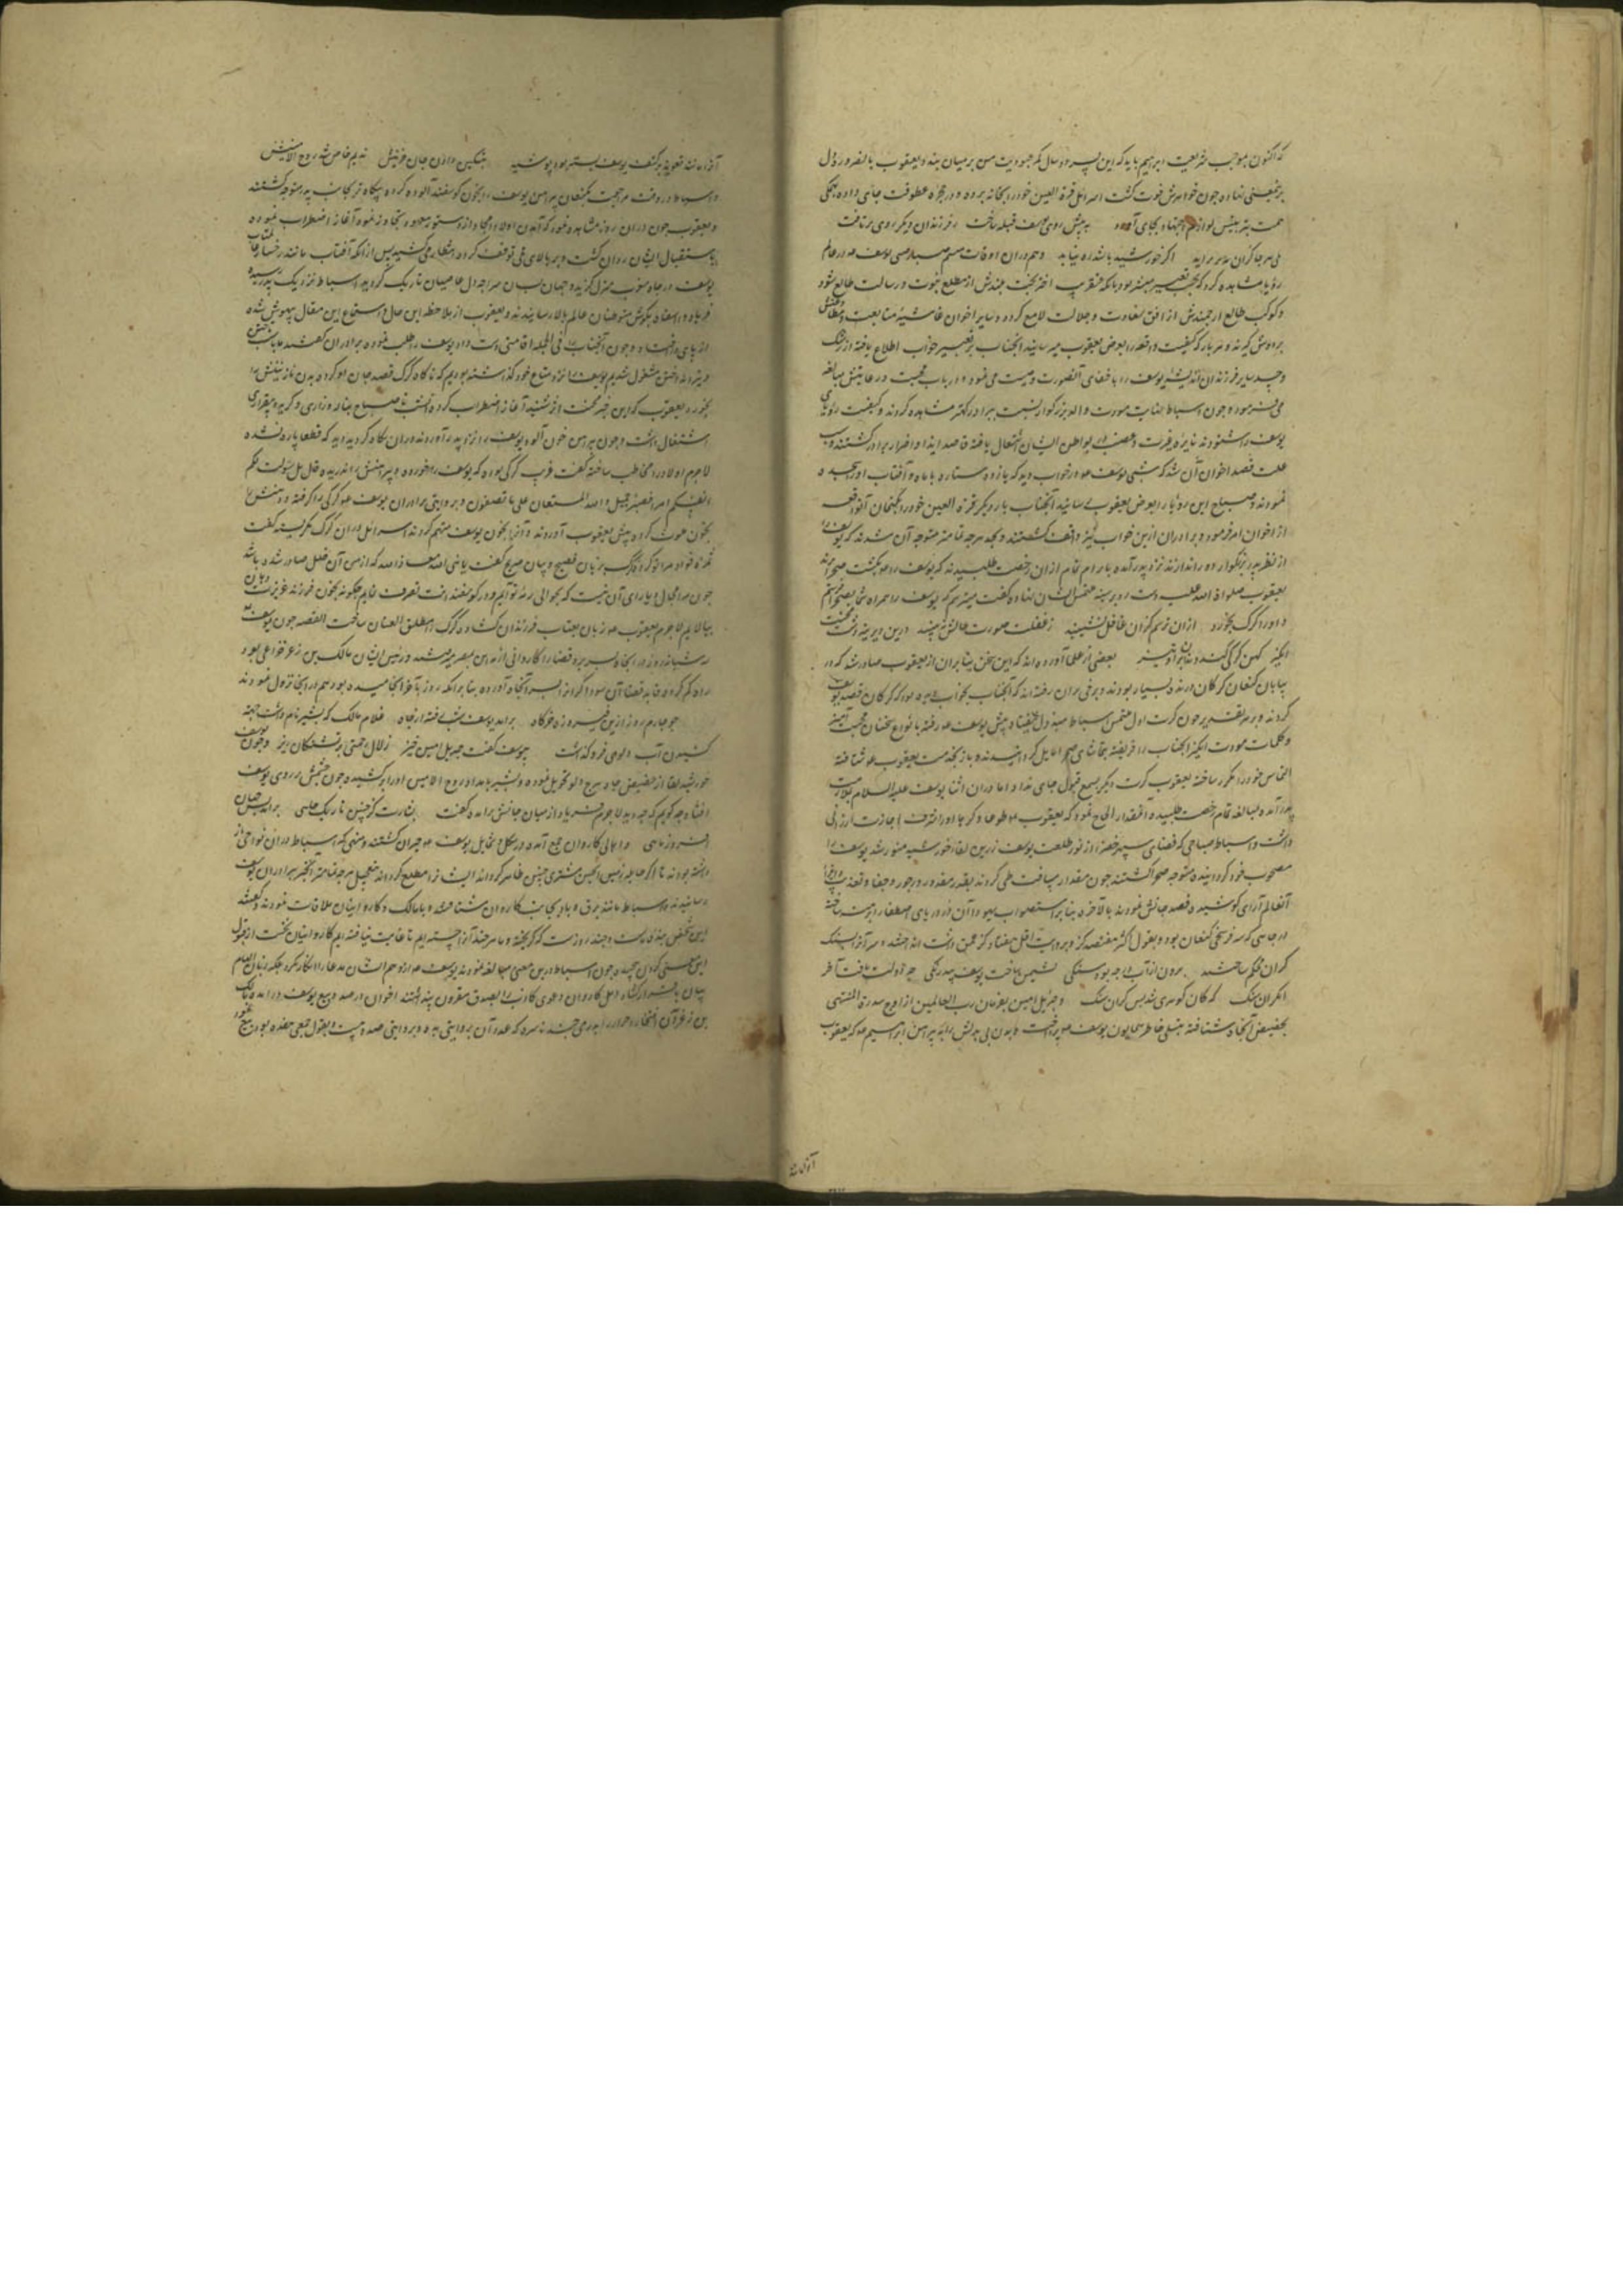 که اکنون بموجب شریعت ابراهیم باید که این پسر دو سال کمر عبودیت من بر میان بندد و یعقوب بالضرور دل
بر نهاده چون خواهرش فوت گشت اسرائیل قرة العین خود را بخانه برده و در حجره عطوفت جای داده همگی
همت بر لوازم بجای آورد به پیش روی یوسف قبله ساخت ز فرزندان دیگر روی برتافت
اگر خورشید باشد ره نیابد و هم در آن اوقات یوسف در عالم
رؤیا مشاهده کرد که اختر بخت بلندش از مطلع نبوت و رسالت طالع شود
و کوکب طالع ارجمندش از افق سعادت و جلالت لامع گردد و سایر اخوان غاشیه متابعت
بر دوش گیرند و هر بار که کیفیت واقعه را بعرض یعقوب میرسانید آنجناب بر تعبیر خواب اطلاع یافته از رشک
و حسد سایر فرزندان اندیشیده یوسف را باخفای آنصورت وصیت می نمود و در باب محبت و رعایتش مبالغه
می فرمود و چون اسباط عنایت والد بزرگوار نسبت ببرادر کهتر مشاهده کردند و کیفیت رؤیای
یوسف شنودند نایره غیرت و غضب در بواطن ایشان اشتعال یافته قاصد ایذا و اضرار برادر گشتند و سبب
علت قصد اخوان آن شد که شبی یوسف در خواب دید که یازده ستاره با ماه و آفتاب او را سجده
نمودند و صباح این رؤیا را بعرض یعقوب رسانید آنجناب بار دیگر قرة العین خود را بکتمان آنواقعه
از اخوان امر فرمود و برادران ازین خواب نیز واقف گشتند و بجد هر چه تمامتر متوجه آن شدند که یوسف را
از نظر پدر بزرگوار دور اندازند نزد پدر آمده بابرام تمام ازان رخصت طلبیدند که یوسف را بگشت صحرا برند
یعقوب صلواة الله علیه دست رد بر سینه ملتمس ایشان نهاده گفت میترسم که یوسف را همراه شما بصحرا فرستم
و او را گرگ بخورد ازان ترسم کزان غافل نشینید ز غفلت صورت حالش نبینید درین دیرینه دشت محنت
انگیز کهن گرگی کند دندان برو تیز بعضی از علما آورده اند که این سخن بنابران از یعقوب صادر شد که در
بیابان کنعان گرگان درنده بسیار بودند و برخی بران رفته اند که آنجناب بخواب دیده بود که گرگان قصد یوسف
کردند و بهر تقدیر چون کرت اول ملتمس اسباط مبذول نیفتاد پیش یوسف رفته بانواع سخنان محبت آمیز
و کلمات مودت انگیز آنجناب را فریفته بتماشای صحرا مایل گردانیدند و باز بخدمت یعقوب شتافته
التماس خود را مکرر ساخته یعقوب کرت دیگر بسمع قبول جای نداد اما در آن اثنا یوسف علیه السلام بملازمت
پدر آمده مبالغه تمام رخصت طلبیده آنمقدار الحاح نمود که یعقوب طوعا و کرها او را اجازت ارزانی
داشت و اسباط صباحی که فضای سپهر خضرا از نور طلعت یوسف زرین لقا خورشید منور شد یوسف را
مصحوب خود گردانیده متوجه صحرا گشتند چون مقدار مسافت طی کردند بقدر مقدور در جور و جفا و تعذیب
آنعالم آرای کوشیده قصد جانش نمودند بالآخره بنابر استصواب یهودا آن در دریای اصطفا را
در چاهی که سه فرسخی کنعان بود و بقول اکثر هفتصد گز و بروایت اقل هفتاد گز عمق داشت انداختند و سر آنرا بسنگ
گران محکم ساختند برون از آب در چه بود سنگی نشیمن ساخت یوسف بیدرنگی چه دولت یافت آخر
آنگران سنگ که کان گوهری شد بس گران سنگ و جبرئیل امین بفرمان رب العالمین از اوج سدرة المنتهی
بحضیض آنچاه شتافته بتسلی خاطر همایون یوسف پرداخت و بدن بی بدلش را به پیراهن ابراهیم که یعقوب
آنرا مانند تعویذ بر کتف یوسف بسته بود پوشید بتسکین دادن جان حزینش ندیم خاص شد روح الامینش
و اسباط در وقت مراجعت بکنعان پیراهن یوسف را بخون گوسفند آلوده کرده بیگاه تر بجانب پدر متوجه گشتند
و یعقوب چون در آن روز مشاهده نمود که آمدن اولاد امجاد از دستور معهود تجاوز نمود آغاز اضطراب نموده
باستقبال ایشان روان گشت و بر بالای تلی توقف کرده انتظار میکشید پس از آنکه آفتاب مانند رخسار
یوسف در چاه مغرب منزل گزید و جهان بسان سراچه دل عاصیان تاریک گردید اسباط نزدیک پدر رسیده
فریاد وا یوسفاه بگوش متوطنان عالم بالا رسانیدند و یعقوب از ملاحظه این حال و استماع این مقال بیهوش شده
از پای درافتاد و چون آنجناب را فی الجمله افاقتی دست داد یوسف را طلب نموده برادران گفتند
و تیر انداختن مشغول شدیم یوسف را نزد متاع خود گذاشته بودیم که ناگاه گرگ قصد جان او کرده بدن نازنینش را
بخورد یعقوب که این خبر محنت اثر شنید آغاز اضطراب کرده آنشب تا صباح بناله و زاری و گریه و بیقراری
اشتغال داشت و چون پیراهن خون آلود یوسف را نزد پدر آوردند در آن نگاه کرده دید که قطعا پاره نشده
لاجرم اولاد را مخاطب ساخته گفت غریب گرگی بوده که یوسف را خورده و پیراهنش را ندریده قال بل سولت لکم
انفسکم امرا فصبر جمیل و الله المستعان علی ما تصفون و بروایتی برادران یوسف گرگی را گرفته و دهنش را
بخون ملوث کرده پیش یعقوب آوردند و آنرا بخون یوسف متهم کردند اسرائیل در آن گرگ نگریسته گفت
ثمره فؤاد مرا تو خوردی گرگ بزبان فصیح و بیان صریح گفت یا نبی الله معاذ الله که از من آن فعل صادر شده باشد
چون مرا مجال و یارای آن نیست که بحوالی رمه تو آیم و در گوسفندانت تصرف نمایم چگونه بخون فرزند عزیزت
بیالایم لاجرم یعقوب زبان بعتاب فرزندان گشاده گرگ را مطلق العنان ساخت القصه چون یوسف
سه شبانه روز در آنچاه بسر برد قضا را کاروانی از مدین بمصر میرفتند و رئیس ایشان مالک بن زعر خزاعی بود
راه گم کرده قاید قضا آن سوداگر را بسر آنچاه آورده بنابر آنکه روز بآخر انجامیده بود هم در آنجا نزول نمودند
چو چارم روز ازین فیروزه خرگاه برآمد یوسف شب رفته در چاه غلام مالک که بشیر نام داشت جهت
کشیدن آب دلوی فرو گذاشت بیوسف گفت جبریل امین خیز زلال رحمتی بر تشنگان ریز و چون یوسف
خورشید لقا از حضیض چاه ببرج دلو تحویل نموده و بشیر بامداد روح الامین او را برکشیده چون چشمش بر روی یوسف
افتاد چه گویم که چه دید لاجرم فریاد از میان جانش برآمد و گفت بشارت کز چنین تاریک چاهی برآمد بس جهان
افروز ماهی و اهالی کاروان جمع آمده در شکل و شمایل یوسف حیران گشتند و منهی که اسباط در آن نواحی باز
داشته بودند تا اگر حال ظاهر گردد ایشانرا مطلع گرداند بتعجیل هر چه تمامتر این خبر ببرادران یوسف
رسانید و اسباط مانند برق و باد بجانب کاروان شتافتند و با مالک و کاروانیان ملاقات نموده گفتند
این شخص بنده ماست و چند روزست که گریخته و ما هر چند او را جسته ایم تا غایت نیافته ایم کاروانیان نخست از قبول
این سخن گردن پیچیده چون اسباط درین معنی مبالغه نمودند یوسف از توهم ایشان مدعا را انکار نکرد بلکه زبان
بیان باقرار گشاد اهل کاروان دعوی کاذب را بصدق مقرون پنداشتند اخوان در صدد بیع یوسف در آمده مالک
بن زعر آن افتخار احرار را بدرمی چند ناسره که عدد آن بروایتی ده و بروایتی صد و بیست و بقول جمعی هفده بود بیع نمود
آنرا مانند